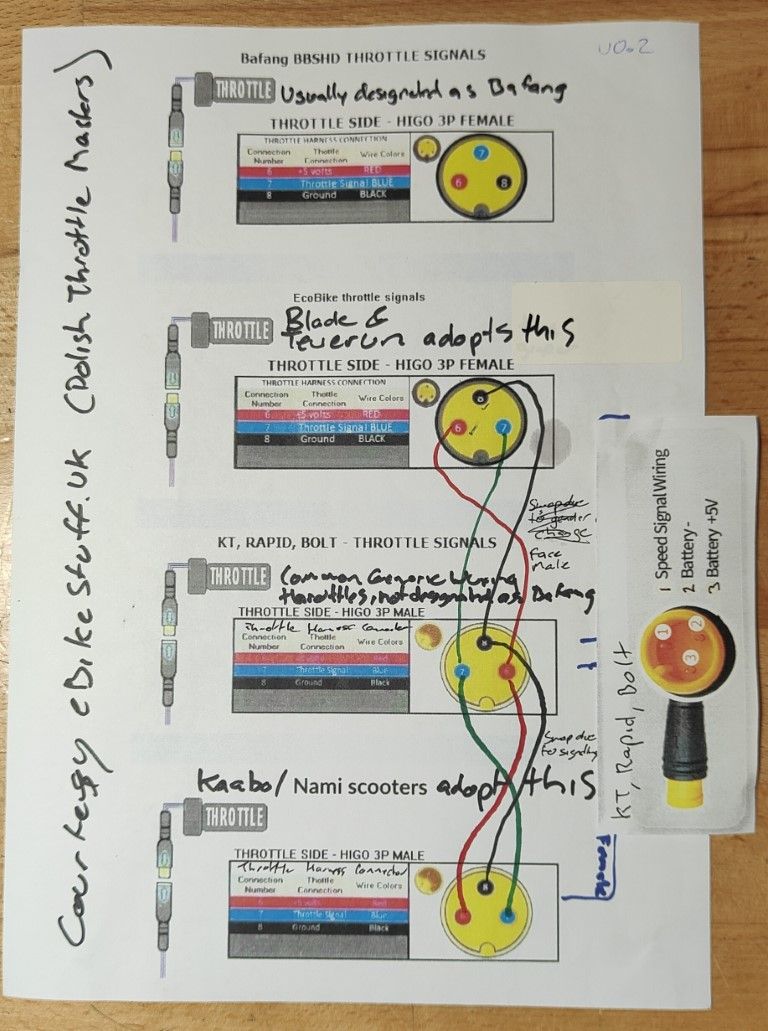 v0.2
Courtesy eBikeStuff.UK (Polish Throttle Masters)
Bafang BBSHD THROTTLE SIGNALS
THROTTLE Usually designated as Bafang
THROTTLE SIDE - HIGO 3P FEMALE
THROTTLE HARNESS CONNECTION
Connection Number Thottle Connection Wire Colors
6 +5 volts RED
7 Throttle Signal BLUE
8 Ground BLACK
7
6 8
EcoBike throttle signals
THROTTLE Blade &
Teverun adopts this
THROTTLE SIDE - HIGO 3P FEMALE
THROTTLE HARNESS CONNECTION
Connection Number Thottle Connection Wire Colors
6 +5 volts RED
7 Throttle Signal BLUE
8 Ground BLACK
8
6 7
Swap due
to gender
change
Face
male
KT, RAPID, BOLT - THROTTLE SIGNALS
THROTTLE Common Generic Wiring
throttles, not designated as Bafang
THROTTLE SIDE - HIGO 3P MALE
Throttle Harness Connector
Connection Number Thottle Connection Wire Colors
Red
7 Throttle Signal Blue
8 Ground Black
8
7
Swap due
to signalling
Kaabo/ Nami scooters adopt this
THROTTLE
THROTTLE SIDE - HIGO 3P MALE
Throttle Harness Connector
Connection Number Thottle Connection Wire Colors
6 +5 volts Red
7 Throttle Signal Blue
8 Ground Black
8
Female
1 Speed Signal Wiring
2 Battery -
3 Battery +5V
1 2
3
KT, Rapid, Bolt